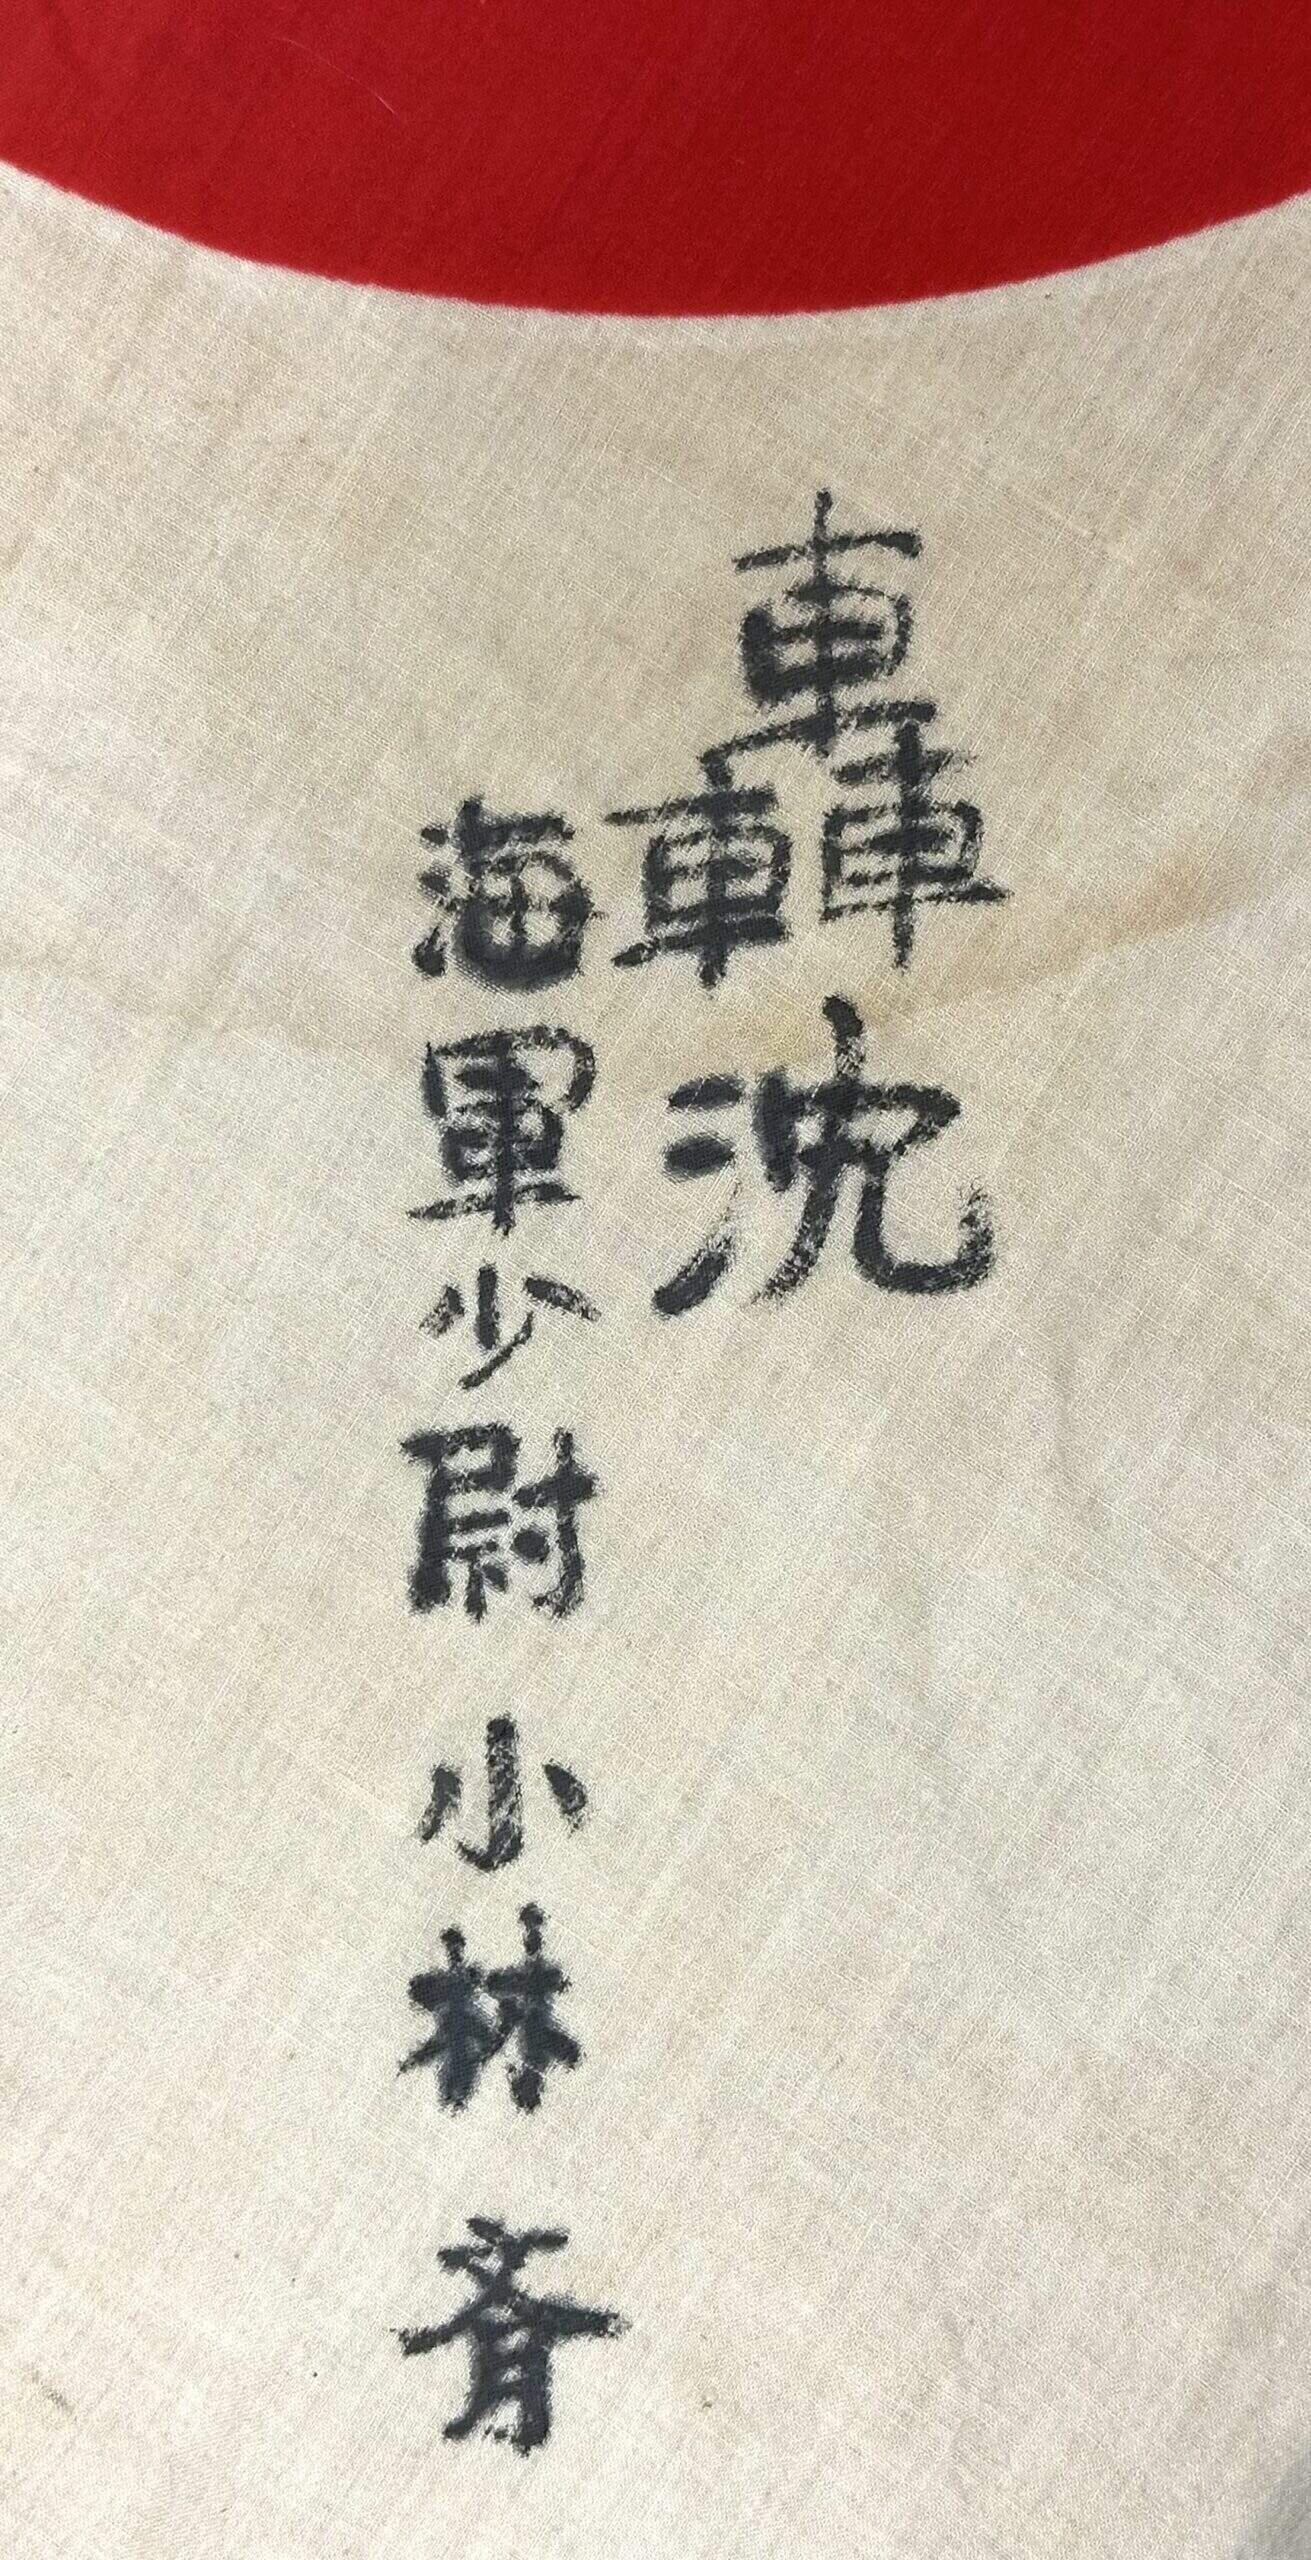 轟沈
海軍少尉 小林 斉